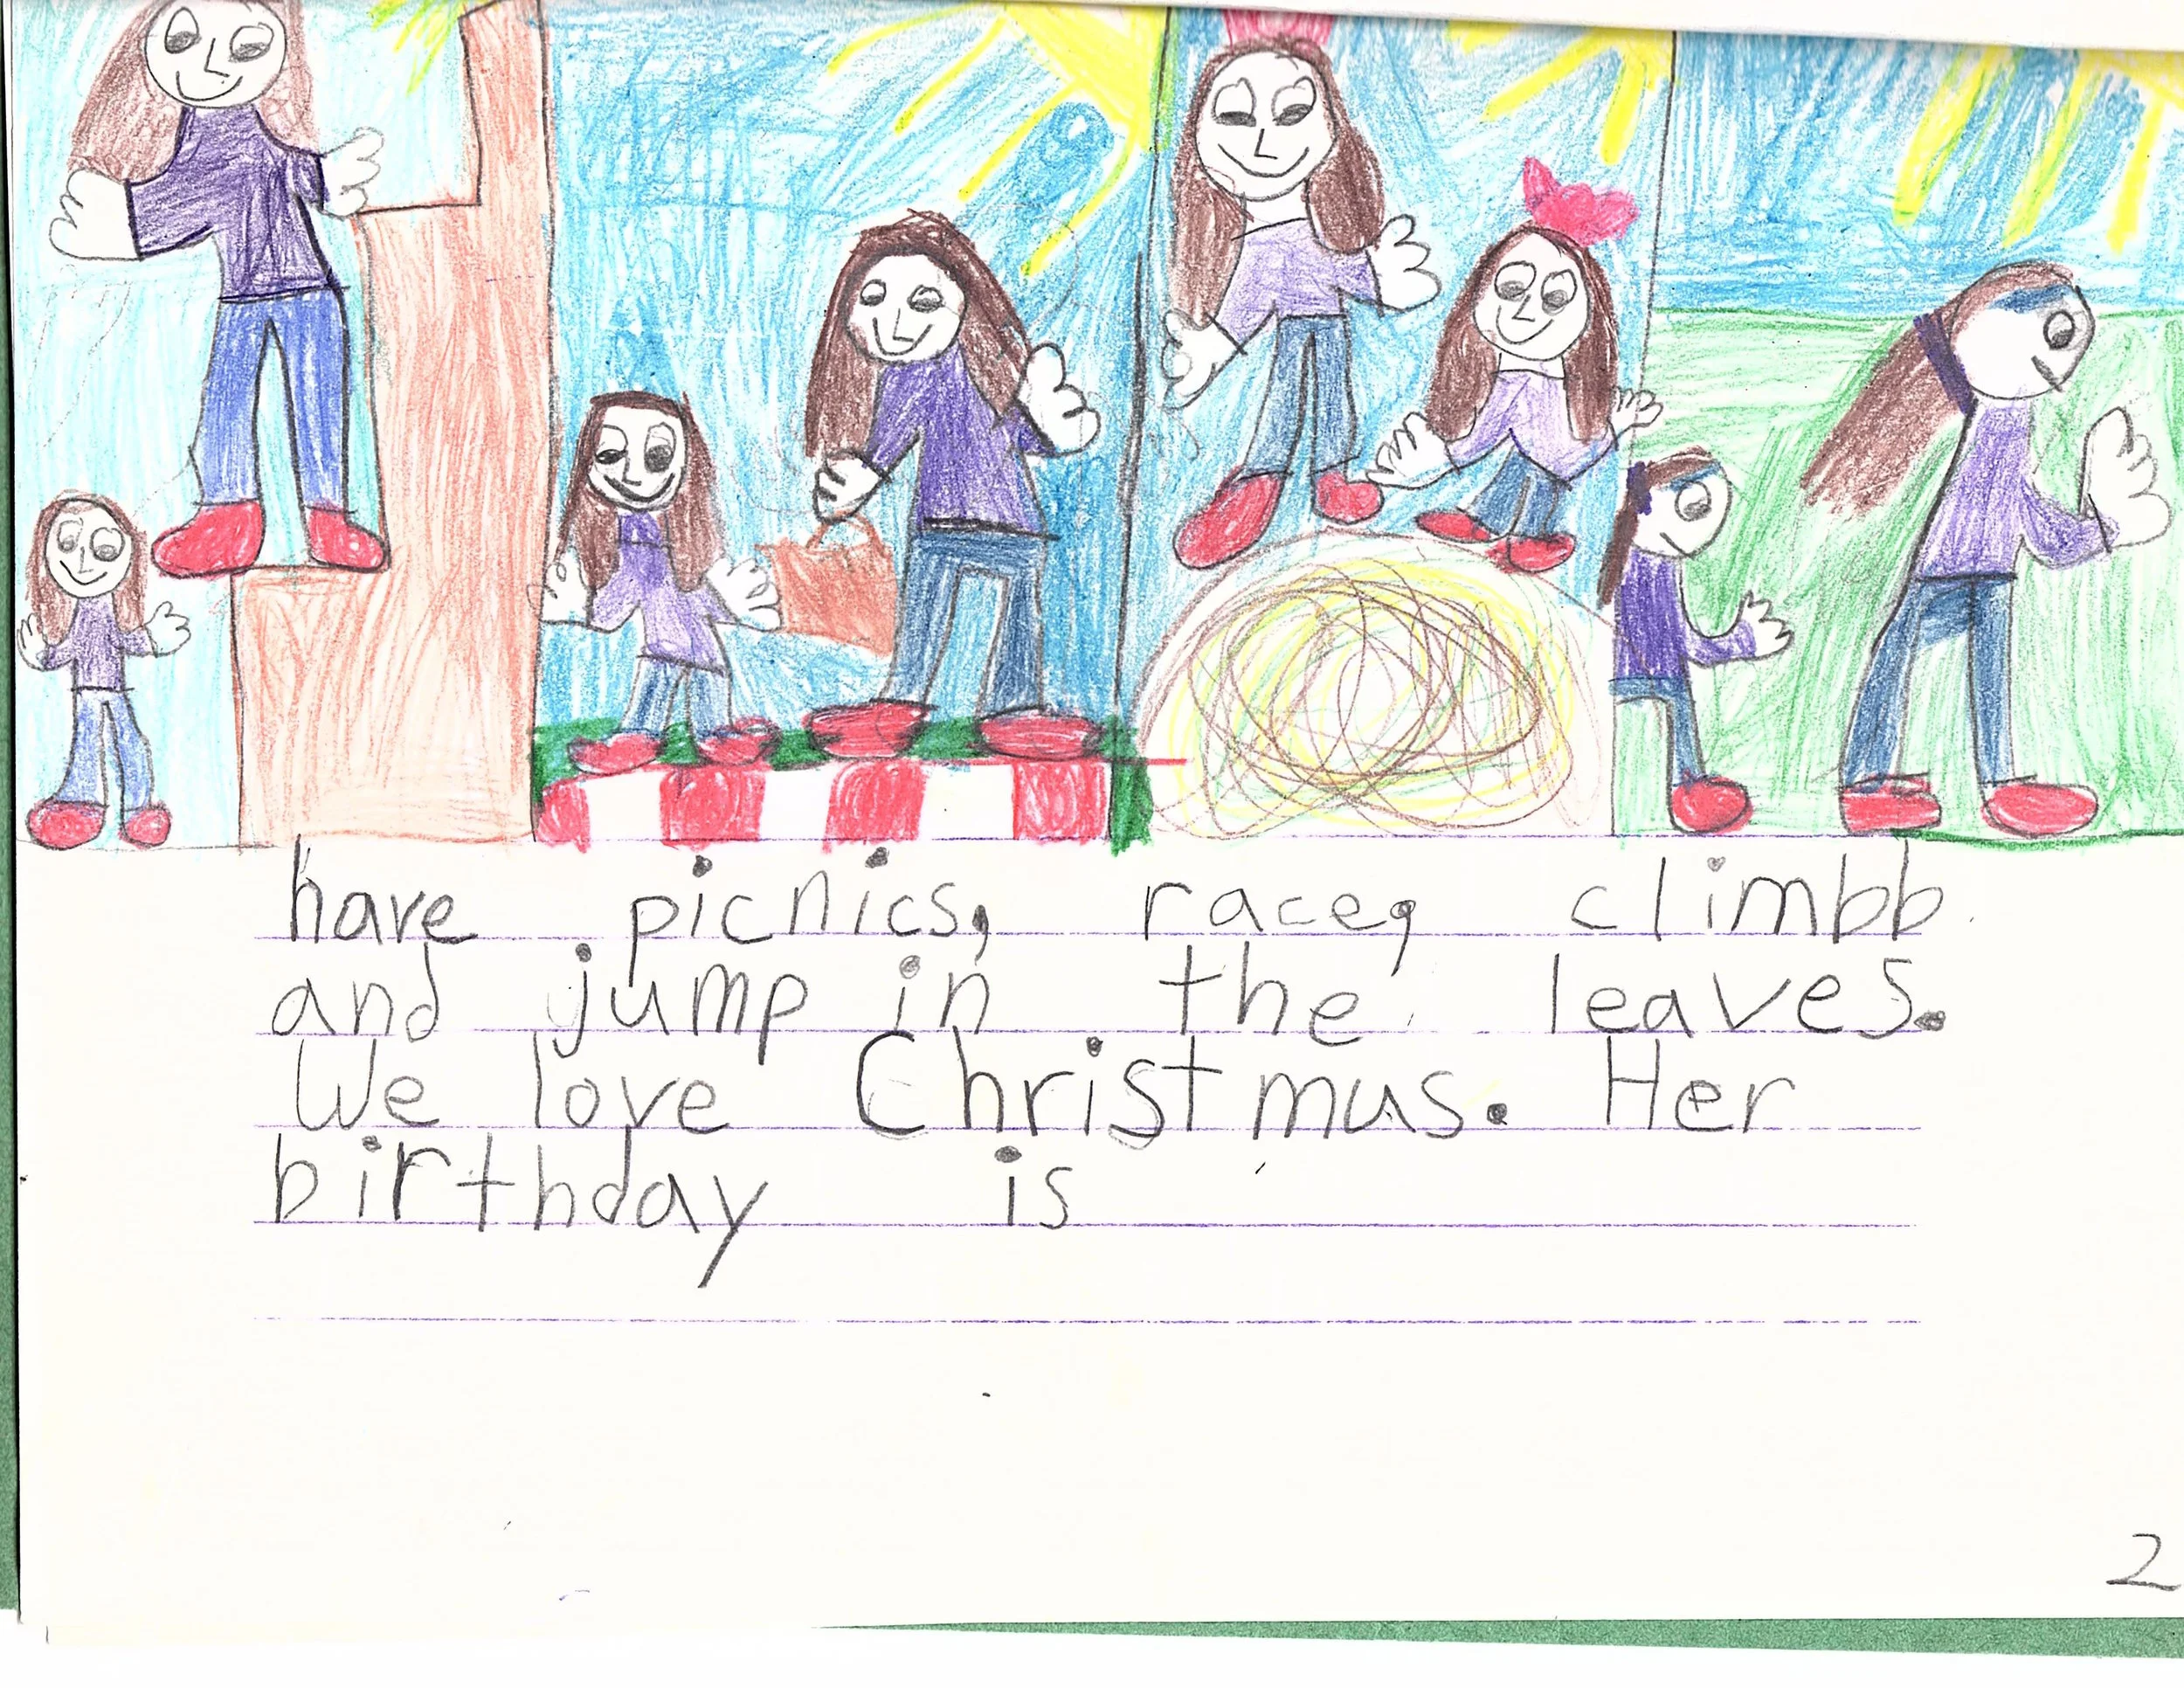 have picnics, race, climbb
and jump in the leaves.
We love Christmus. Her
birthday is
2